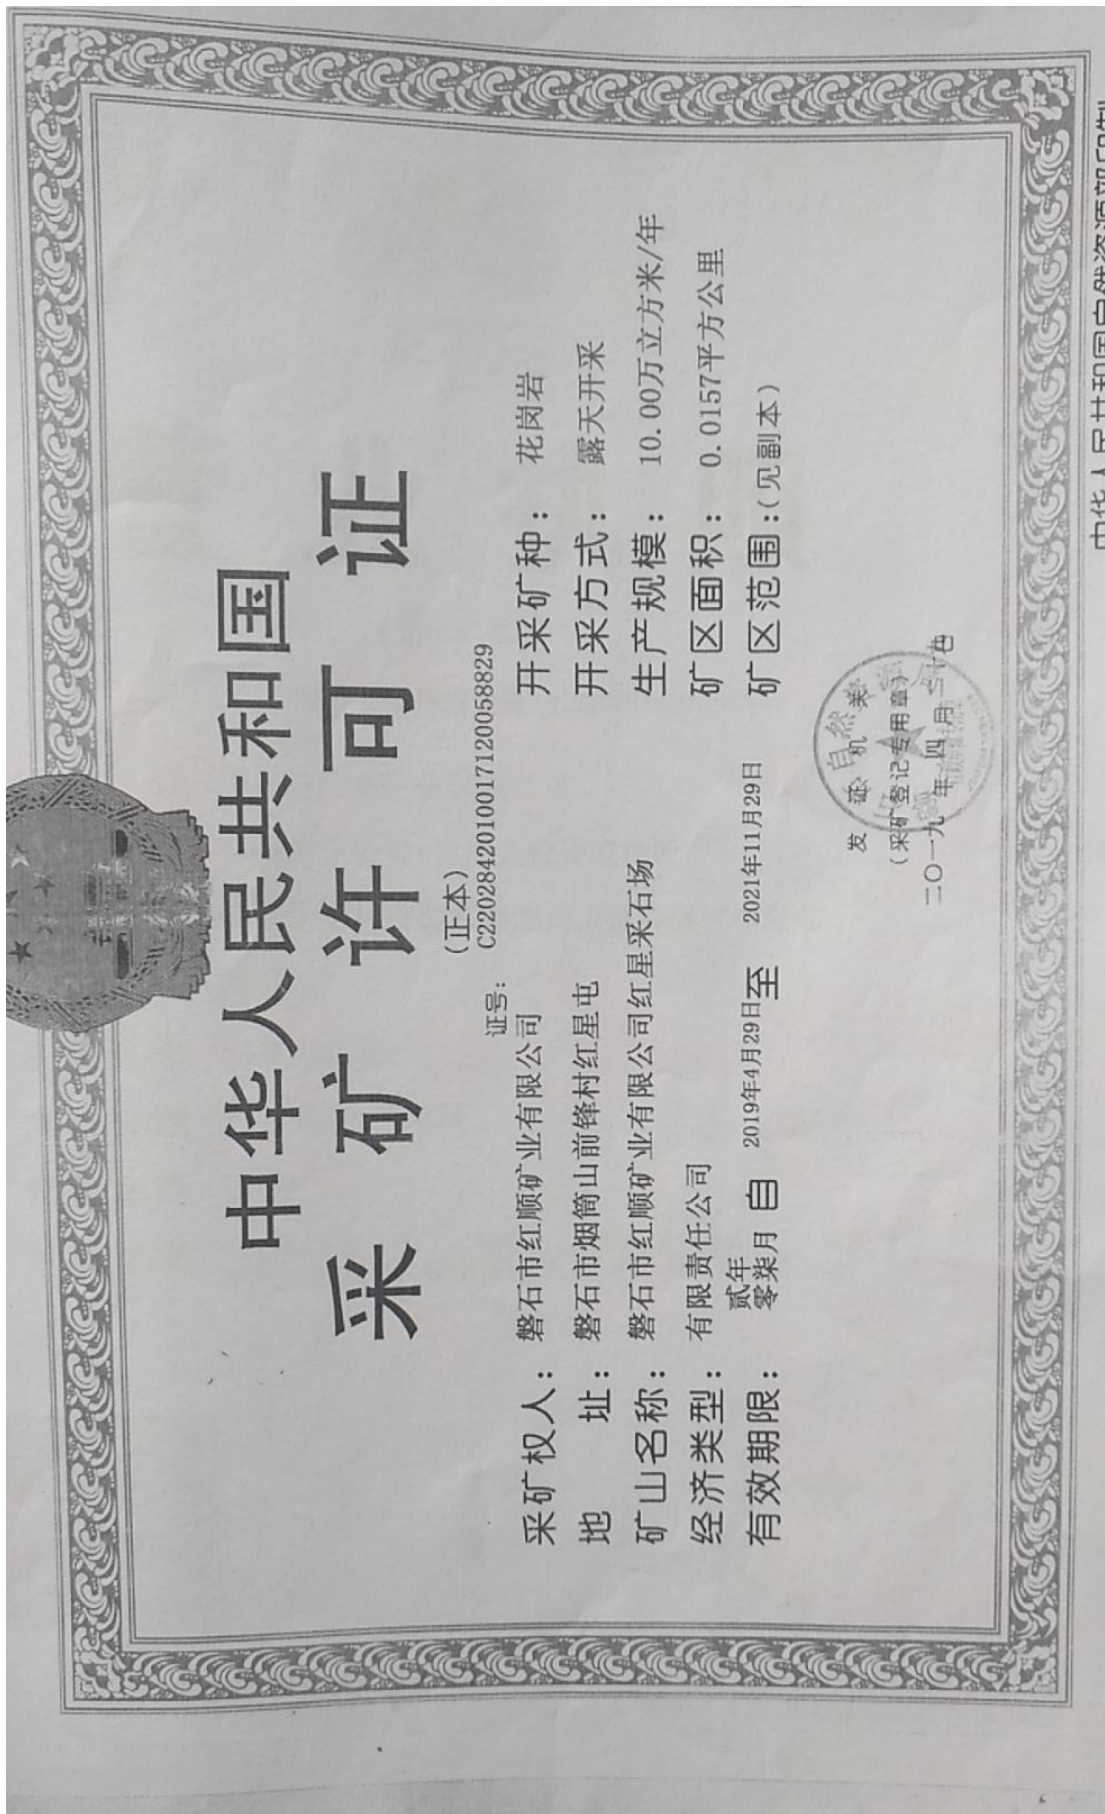 中华人民共和国
采矿许可证
(正本)
证号: C2202842010017120058829
采矿权人: 磐石市红顺矿业有限公司
地 址: 磐石市烟筒山前锋村红星屯
矿山名称: 磐石市红顺矿业有限公司红星采石场
经济类型: 有限责任公司
有效期限: 贰年零柒月 自 2019年4月29日 至 2021年11月29日
开采矿种: 花岗岩
开采方式: 露天开采
生产规模: 10.00万立方米/年
矿区面积: 0.0157平方公里
矿区范围:(见副本)
发 证 机 关
(采矿登记专用章)
二〇一九年 四月
自然资源
中华人民共和国自然资源部印制